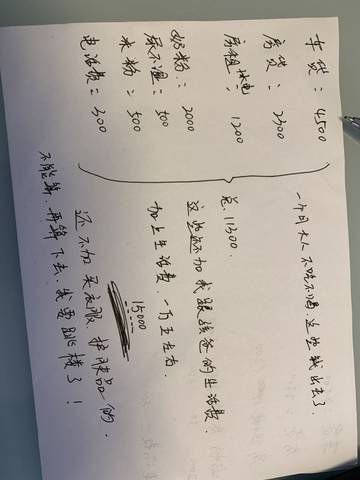 车贷：4500
房贷：2300
房租水电：1200
奶粉：2000
尿不湿：500
米粉：500
电话费：300
一个月大人不吃不喝，这些钱出去了，
总：11300.
这些还不加我跟孩爸的生活费，
加上生活费，一万五左右，
15000
还不加买衣服，护肤品的，
不能算，再算下去，我要跳楼了！